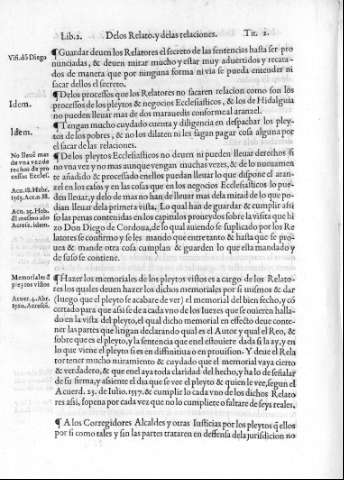 Lib.2. Delos Relato.y delas relaciones. Tit. 2.
Visi.dō Diego
¶ Guardar deuen los Relatores el secreto de las sentencias hasta ser pro
nunciadas, & deuen mirar mucho y estar muy aduertidos y recata-
dos de manera que por ninguna forma ni via se pueda entender ni
sacar dellos el secreto.
Idem.
¶ Delos processos que los Relatores no sacaren relacion como son lōs
processos de los pleytos & negocios Ecclesiasticos, & los de Hidalguia
no pueden lleuar mas de dos marauedis conforme al aranzel.
Idem.
¶ Tengan mucho cuydado cuenta y diligencia en despachar los pley-
tos de los pobres, & no los dilaten ni les hagan pagar cosa alguna por
el sacar de las relaciones.
No lleuē mas
de vna vez de
rechos de pro
cessos Eccless.
Acu.18. Hebr.
1565. Acr. n. III.
Acu. 25. Hebr.
del mesmo año
Acresu. idem.
¶ De los pleytos Ecclesiasticos no deuen ni pueden lleuar derechos si
no vna vez y no mas aunque vengan muchas vezes, & de lo nueuamen
te añadido & processado enellos puedan lleuar lo que dispone el aran-
zel en los casos y en las cosas que en los negocios Ecclesiasticos lo pue-
den lleuar, y delo de mas no han de lleuar mas dela mitad de lo que po-
dian lleuar dela primera vista, Lo qual han de guardar & cumplir assi
so las penas contenidas en los capitulos proueydos sobre la visita que hi
zo Don Diego de Cordoua, de lo qual auiendo se suplicado por los Re
latores se confirmo y se les mando que entretanto & hasta que se pro-
uea & mande otra cosa cumplan & guarden lo que esta mandado y
de suso se contiene.
Memoriales đ
pleytos vistos
Acuer. 4. Abr.
1560. Acresu.
¶ Hazer los memoriales de los pleytos vistos es a cargo de los Relato-
res los quales deuen hazer los dichos memoriales por si mismos & dar
(luego que el pleyto se acabare de ver) el memorial del bien hecho, y cō
certado para que assi se de a cada vno de los Iuezes que se ouieren halla-
do en la vista del pleyto, el qual dicho memorial en effecto deue conte-
ner las partes que litigan declarando qual es el Autor y qual el Reo, &
sobre que es el pleyto, y la sentencia que enel estouiere dada si la ay, y en
lo que viene el pleyto si es en diffinitiua o en prouision. Y deue el Rela
tor tener mucho miramiento & cuydado que el memorial vaya cierto
& verdadero, & que enel aya toda claridad del hecho, y ha lo de señalar
de su firma, y assiente el dia que se vee el pleyto & quien le vee, segun el
Acuerd. 23. de Iulio. 1557. & cumplir lo cada vno de los dichos Relato
res assi, sopena por cada vez que no lo cumpliere o faltare de seys reales.
¶ A los Corregidores Alcaldes y otras Iusticias por los pleytos q̄ ellos
por si como tales y sin las partes trataren en deffensa dela jurisdicion no